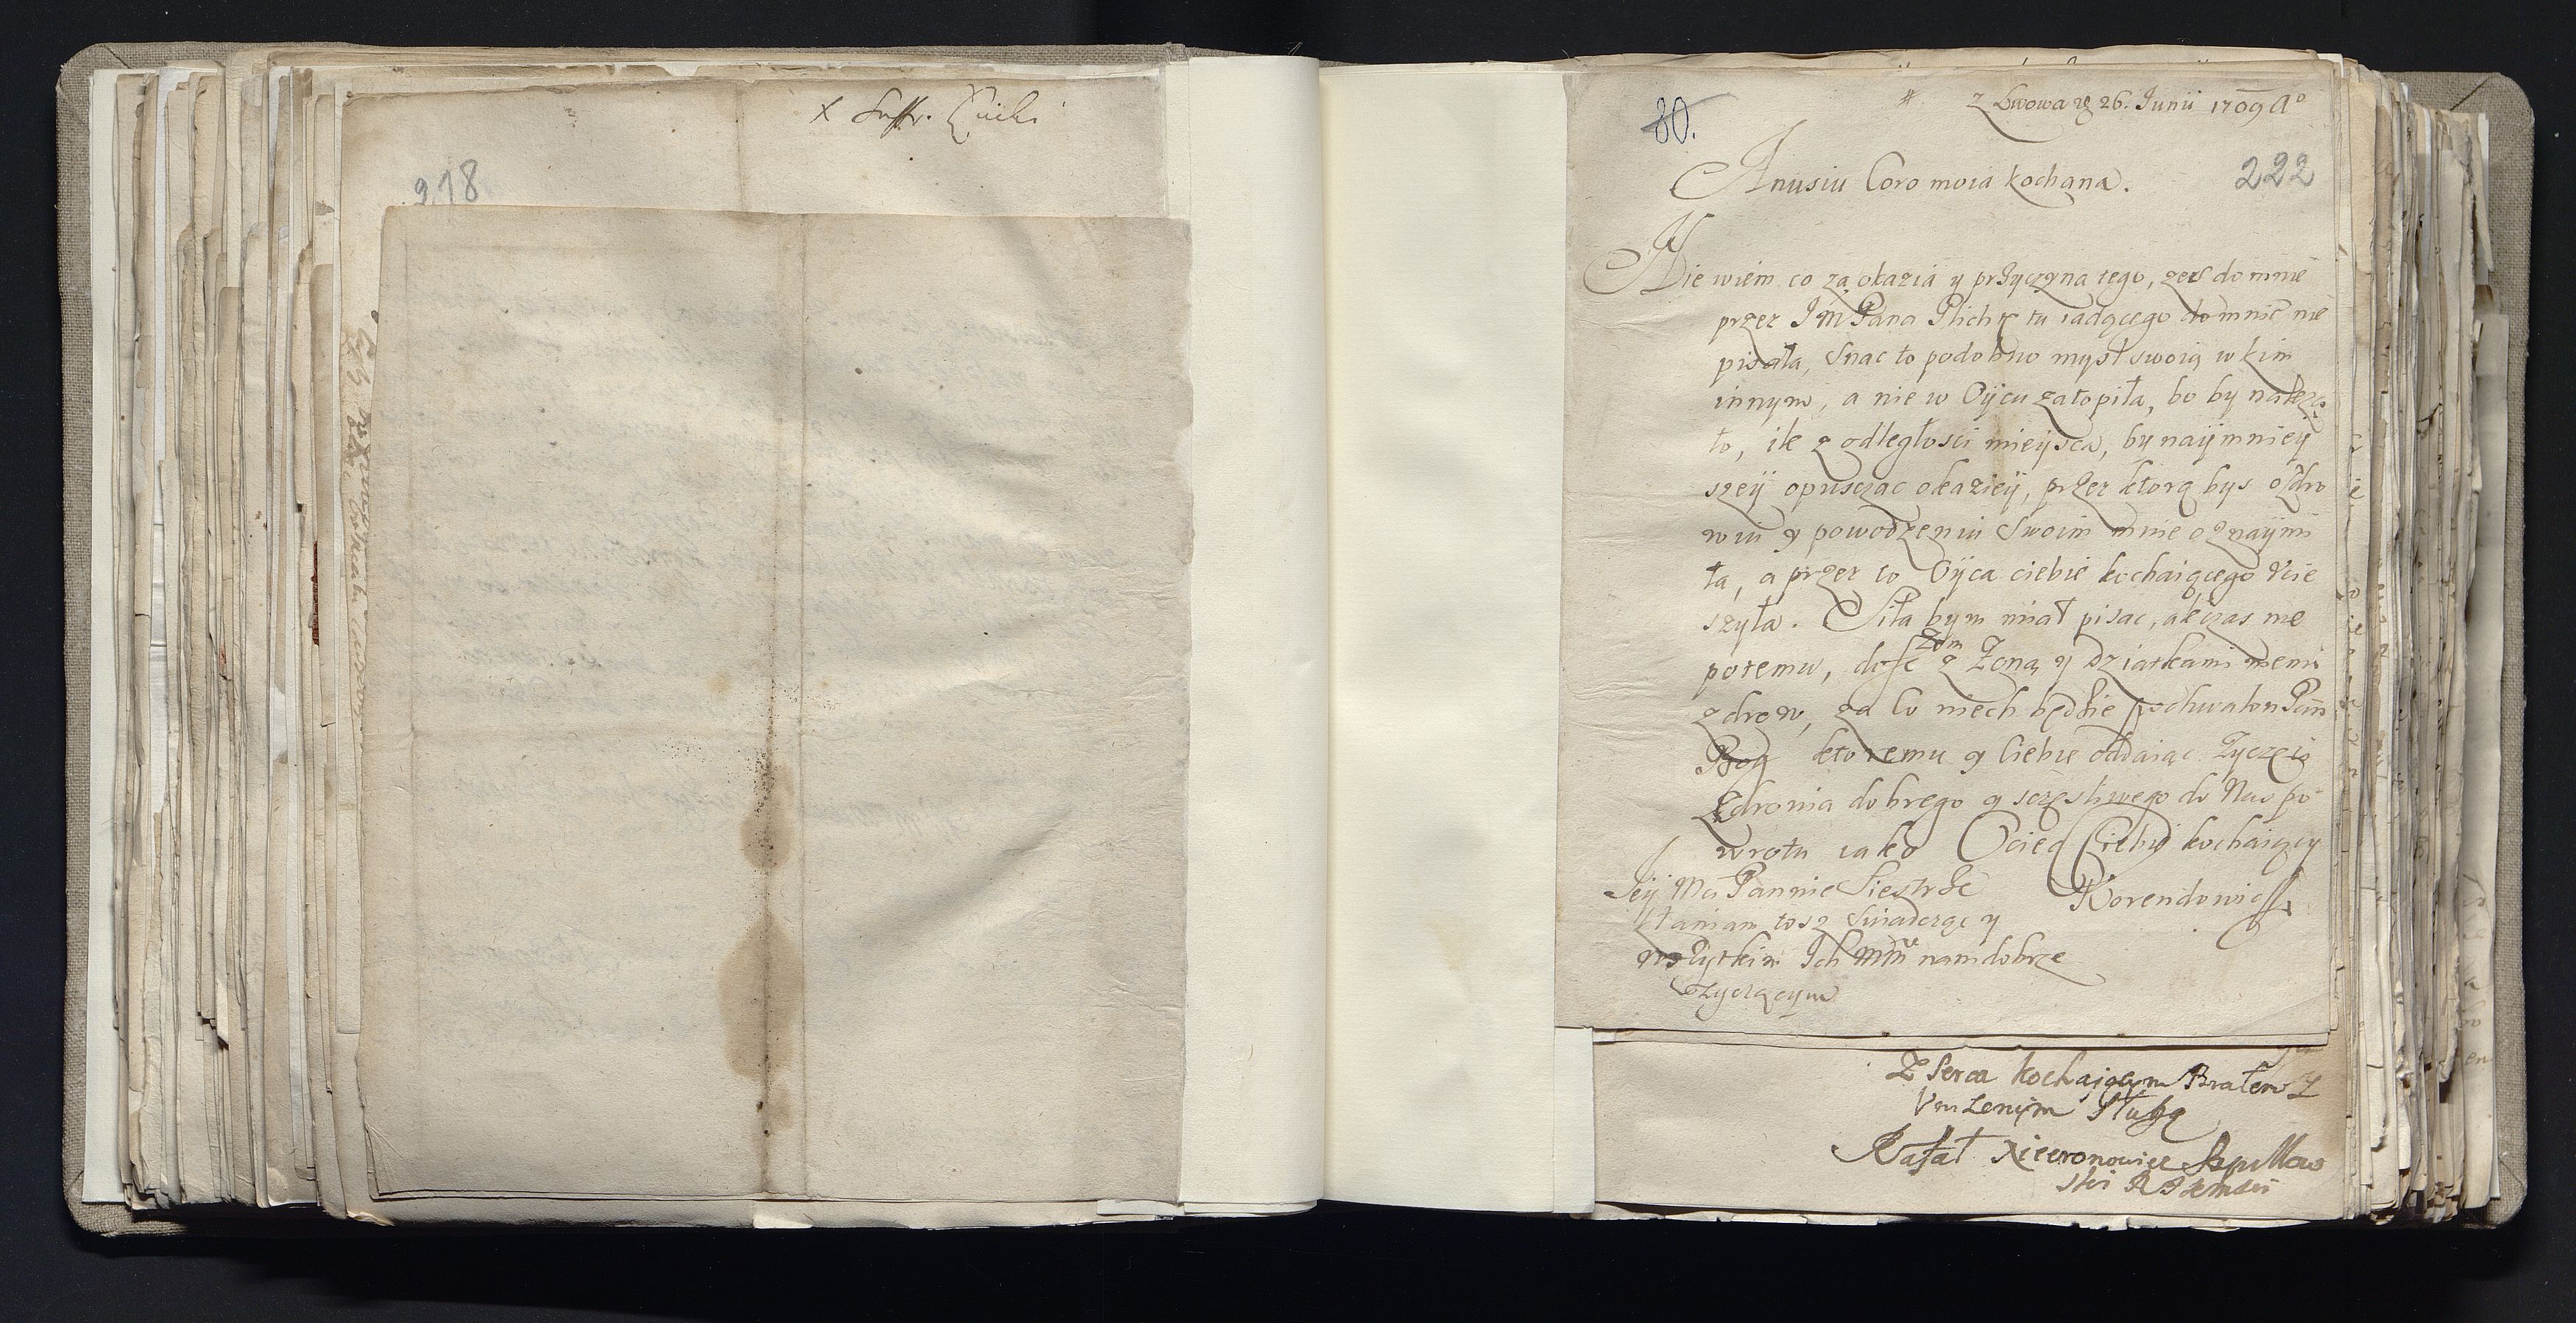 218
80.
z Lwowa 26. Junii 1709 Aº
222
Anusiu Coro moia kochana.
Nie wiem co za okazia y przyczyna tego, zes do mnie
przez Jm Pana Plichtę tu iadącego do mnie nie
pisała, snac to podobno mysl swoią w kim
innym, a nie w Oycu zatopiła, bo by należa
ło, ile z odległosci mieysca, by naymniey
szey opuszczac okaziey, przez ktorą bys o zdro
wiu y powodzeniu swoim mnie oznaymi
ła, a przez to Oyca ciebie kochaiącego Vcie
szyła. Siła bym miał pisac, ale czas nie
potemu, dosc zem z Zoną y Dziatkami memi
zdrow, za co niech będzie pochwalon Pan
Bog ktoremu y Ciebie oddaiąc Zyczę ci
Zdrowia dobrego y sczęsliwego do Nas po
wrotu iako Ociec Ciebie kochaiący
Jey Mci Pannie Siestrze
kłaniam tosz swiadczę y
wszytkim Ich Mm nam dobrze
zyczącym
Z Serca kochającym Bratem Z
Vnizenym Sługą
Rafał